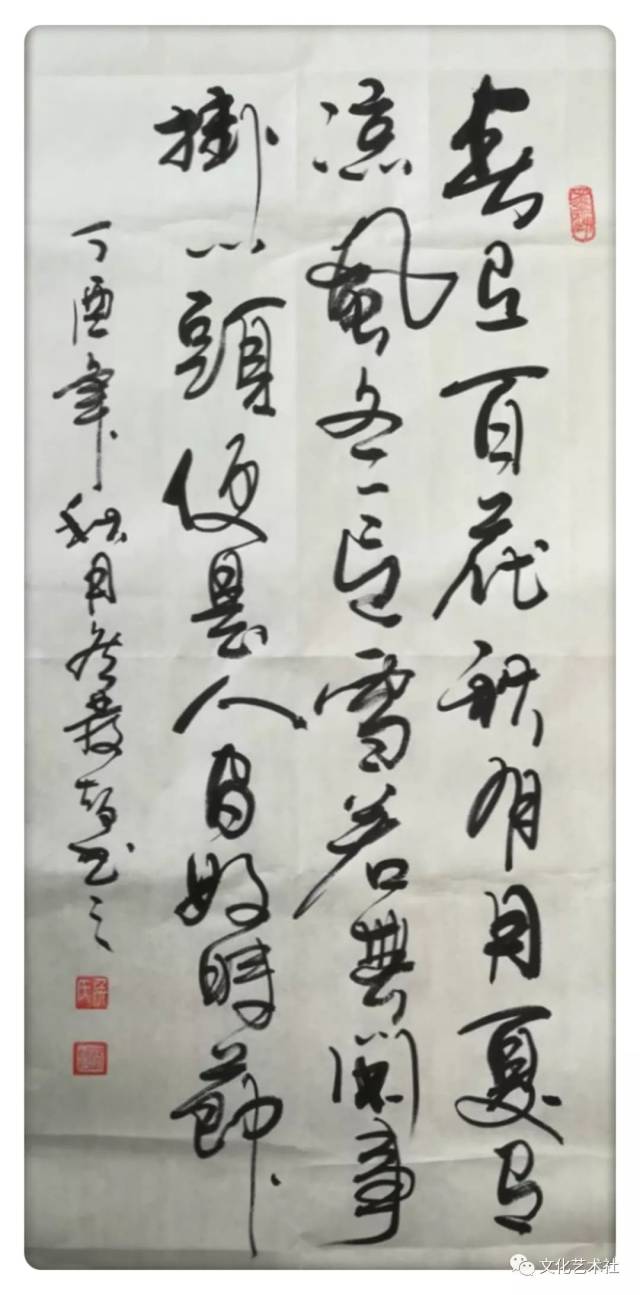 春有百花秋有月夏有
凉風冬有雪若無闲事
掛心頭便是人间好時節
丁酉年秋月 书之
文化艺术社